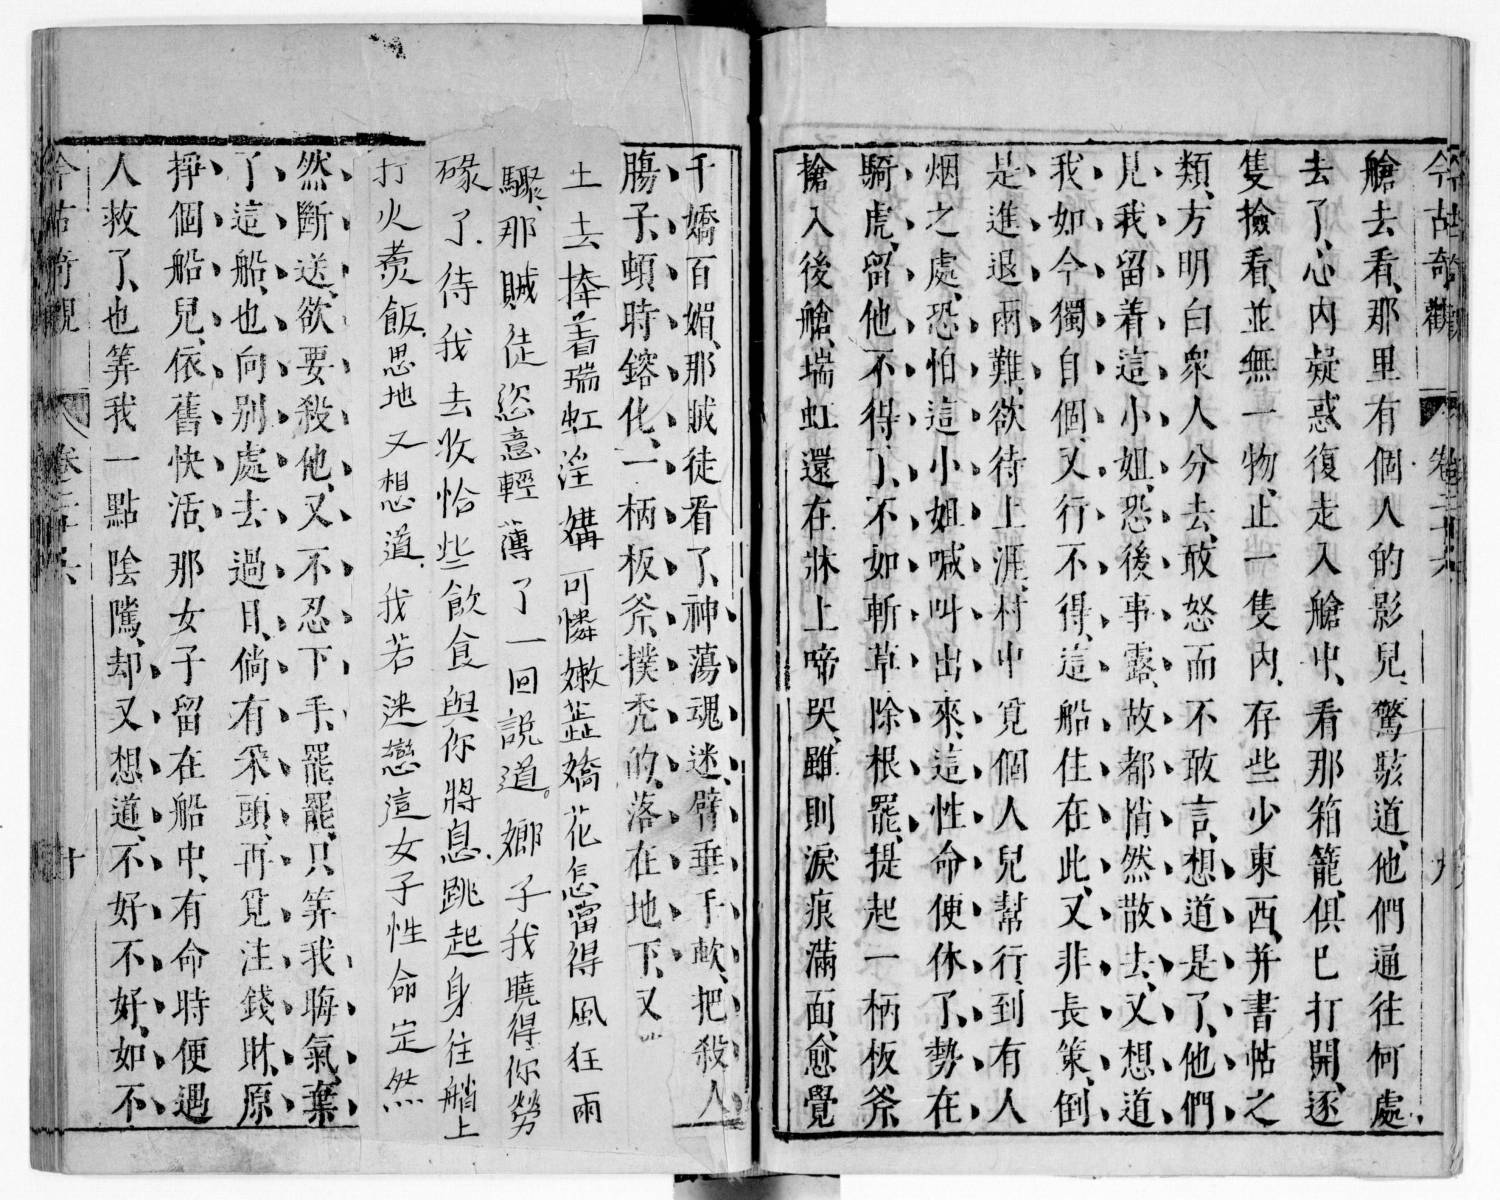 今古奇觀 卷三十六 九
艙去看、那里有個人的影兒、驚駭道、他們通往何處
去了、心內疑惑復走入艙中、看那箱籠、俱巳打開、逐
隻撿看、並無一物、止一隻內、存些少東西、并書帖之
類、方明白衆人分去、敢怒而不敢言、想道是了、他們
見我留着這小姐、恐後事露、故都悄然散去、又想道
我如今獨自個、又行不得、這船住在此、又非長策、倒
是進退兩難、欲待上涯、村中覓個人兒幫行、到有人
烟之處、恐怕這小姐喊叫出來、這性命便休了、勢在
騎虎、留他不得了、不如斬草除根罷、提起一柄板斧
搶入後艙、瑞虹還在牀上啼哭、雖則淚痕滿面、愈覺
千嬌百媚、那賊徒看了、神蕩魂迷、臂垂手軟、把殺人
腸子、頓時鎔化、一柄板斧、撲禿的、落在地下、又
上去捧着瑞虹淫媾可憐嫩蕋嬌花怎當得風狂雨
驟、那賊徒恣意輕薄了一回說道。娜子我曉得你勞
碌了、待我去收恰些飲食與你將息、跳起身往艄上
打火煑飯、思地又想道、我若迷戀這女子性命定然
然斷送、欲要殺他、又不忍下手、罷罷、只筭我晦氣、棄
了這船、也向别處去過日、倘有采頭、再覓注錢財、原
掙個船兒、依舊快活、那女子留在船中、有命時便遇
人救了、也筭我一點陰隲、却又想道、不好不好、如不
今古奇觀 卷三十六 十